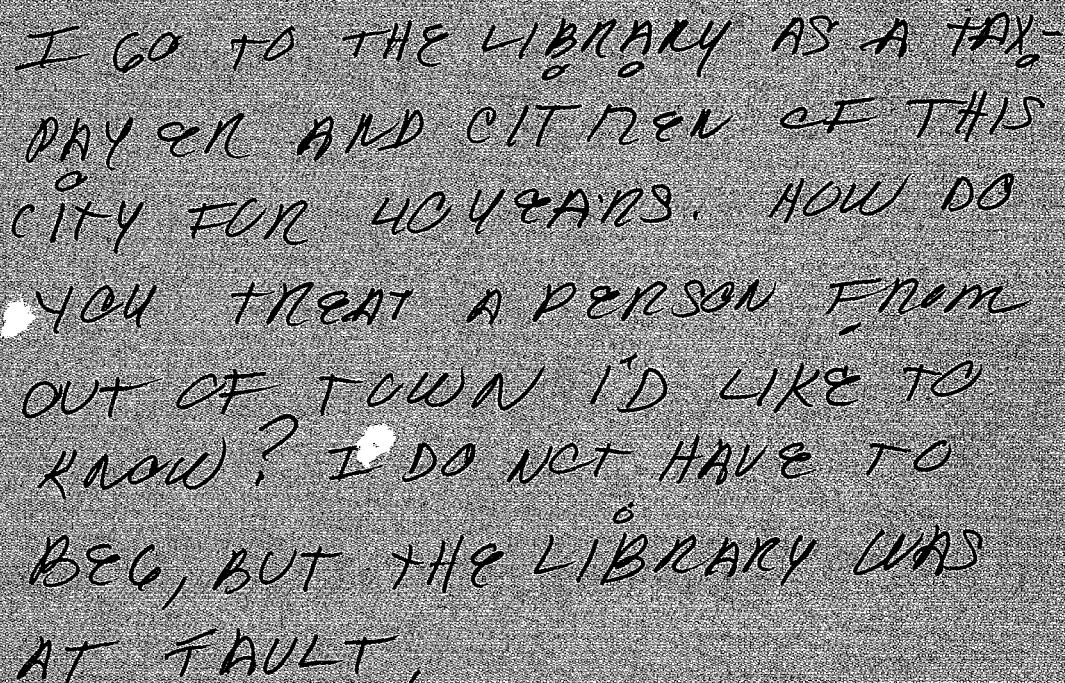 I GO TO THE LIBRARY AS A TAX-
PAYER AND CITIZEN OF THIS
CITY FOR 40 YEARS. HOW DO
YOU TREAT A PERSON FROM
OUT OF TOWN I'D LIKE TO
KNOW? I DO NOT HAVE TO
BEG, BUT THE LIBRARY WAS
AT FAULT,